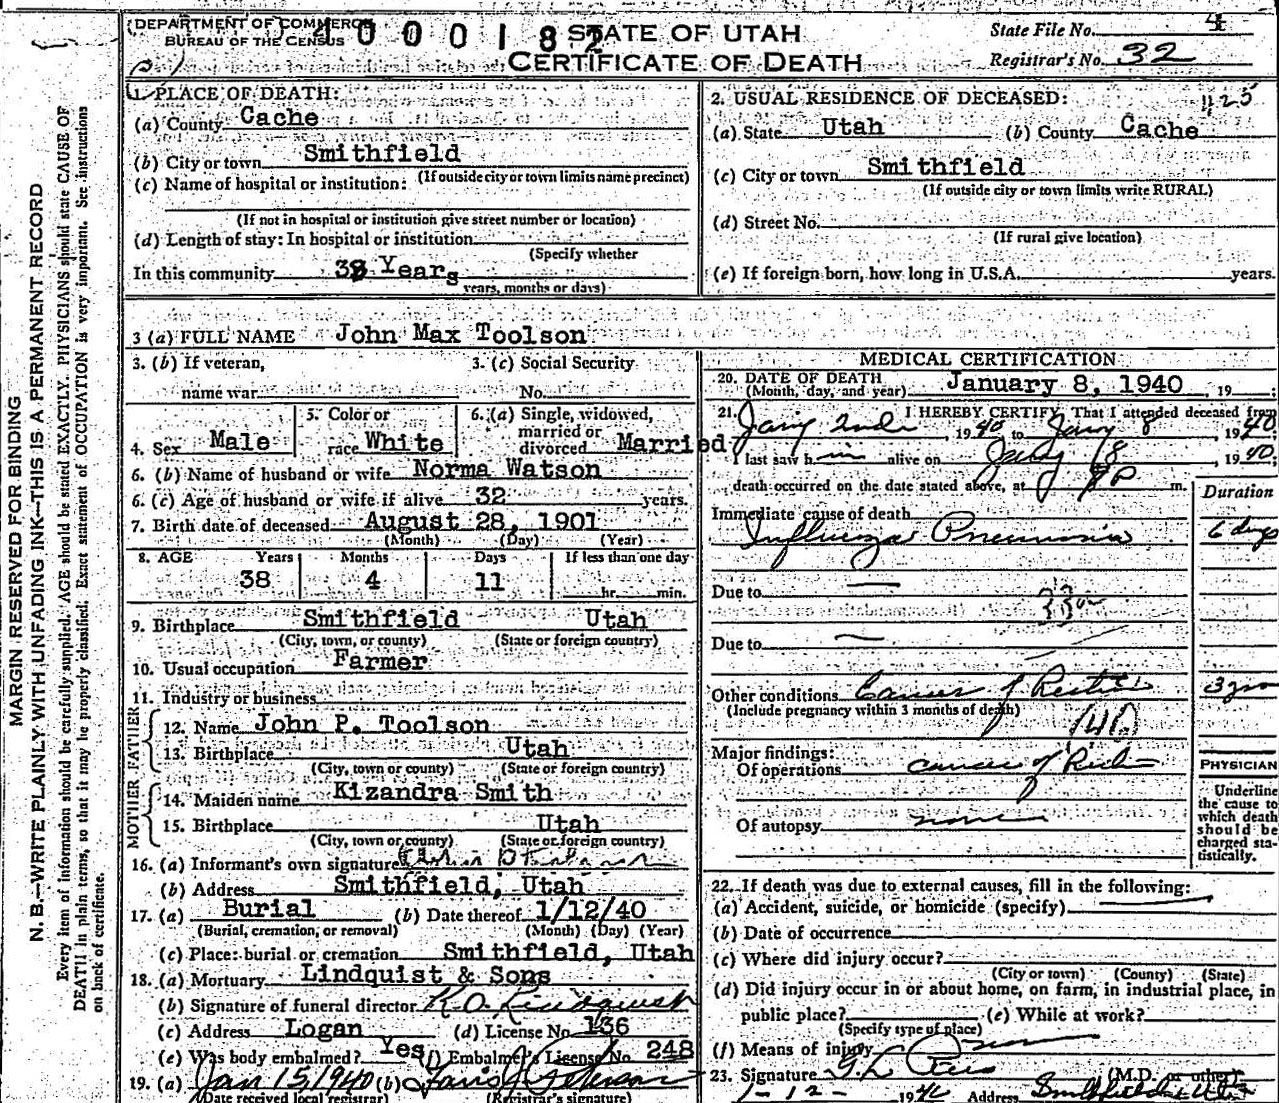 DEPARTMENT OF COMMERCE
BUREAU OF THE CENSUS
4 0 0 0 1 8 2
STATE OF UTAH
CERTIFICATE OF DEATH
State File No. 4
Registrar's No. 32
1. PLACE OF DEATH:
(a) County Cache
(b) City or town Smithfield
(If outside city or town limits name precinct)
(c) Name of hospital or institution:
(If not in hospital or institution give street number or location)
(d) Length of stay: In hospital or institution
(Specify whether
In this community 38 Years
years, months or days)
1125
2. USUAL RESIDENCE OF DECEASED:
(a) State Utah (b) County Cache
(c) City or town Smithfield
(If outside city or town limits write RURAL)
(d) Street No.
(If rural give location)
(e) If foreign born, how long in U.S.A. years.
3 (a) FULL NAME John Max Toolson
3. (b) If veteran, 3. (c) Social Security
name war No.
4. Sex Male 5. Color or race White 6. (a) Single, widowed, married or divorced Married
6. (b) Name of husband or wife Norma Watson
6. (c) Age of husband or wife if alive 32 years.
7. Birth date of deceased August 28, 1901
(Month) (Day) (Year)
8. AGE Years Months Days If less than one day
38 4 11 hr. min.
9. Birthplace Smithfield Utah
(City, town, or county) (State or foreign country)
10. Usual occupation Farmer
11. Industry or business
FATHER
12. Name John P. Toolson
13. Birthplace Utah
(City, town or county) (State or foreign country)
MOTHER
14. Maiden name Kizandra Smith
15. Birthplace Utah
(City, town or county) (State or foreign country)
16. (a) Informant's own signature
(b) Address Smithfield, Utah
17. (a) Burial (b) Date thereof 1/12/40
(Burial, cremation, or removal) (Month) (Day) (Year)
(c) Place: burial or cremation Smithfield, Utah
18. (a) Mortuary Lindquist & Sons
(b) Signature of funeral director K.O. Lindquist
(c) Address Logan (d) License No 136
(e) Was body embalmed? Yes (f) Embalmer's License No. 248
19. (a) Jan 15, 1940 (b) Peterson
(Date received local registrar) (Registrar's signature)
MEDICAL CERTIFICATION
20. DATE OF DEATH January 8, 1940, 19 ;
(Month, day, and year)
21. I HEREBY CERTIFY, That I attended deceased from
Jany 2nd, 1940 to Jany 8, 1940.
I last saw h im alive on Jany 8, 1940.
death occurred on the date stated above, at P m.
Duration
Immediate cause of death
Influenza Pneumonia 6 days
Due to —
33a
Due to —
Other conditions Cancer of Rectum 3 yrs
(Include pregnancy within 3 months of death)
Major findings:
Of operations cancer of
Of autopsy none
PHYSICIAN
Underline
the cause to
which death
should be
charged sta-
tistically.
22. If death was due to external causes, fill in the following:
(a) Accident, suicide, or homicide (specify)
(b) Date of occurrence
(c) Where did injury occur?
(City or town) (County) (State)
(d) Did injury occur in or about home, on farm, in industrial place, in
public place? (e) While at work?
(Specify type of place)
(f) Means of injury
23. Signature (M.D. or other)
1-12-1940 Address Smithfield Utah
MARGIN RESERVED FOR BINDING
N. B.—WRITE PLAINLY WITH UNFADING INK—THIS IS A PERMANENT RECORD
Every item of information should be carefully supplied. AGE should be stated EXACTLY. PHYSICIANS should state CAUSE OF
DEATH in plain terms, so that it may be properly classified. Exact statement of OCCUPATION is very important. See instructions
on back of certificate.